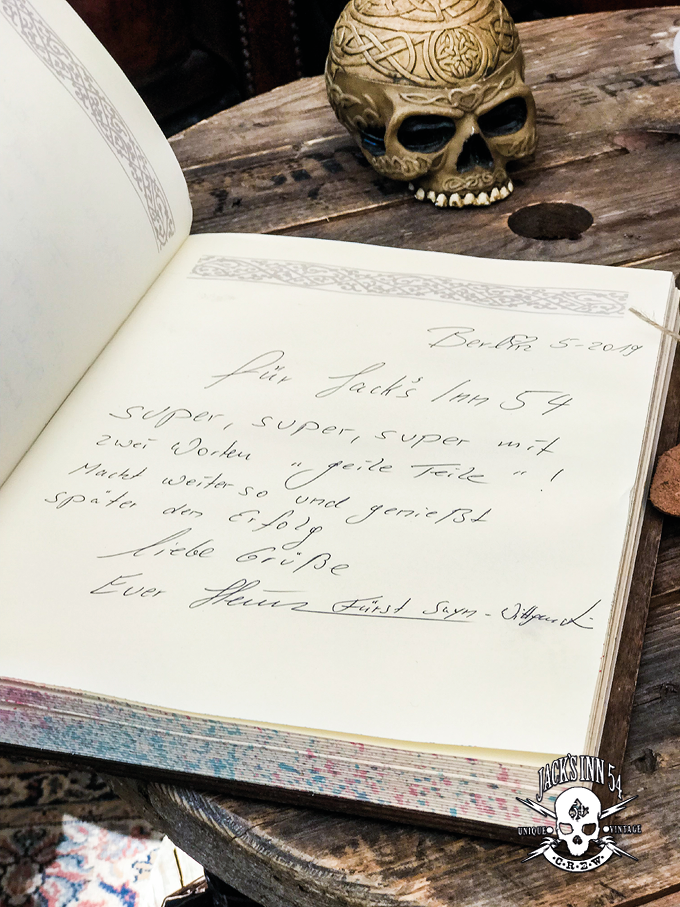 Berlin 5-2019
für Jack's Inn 54
super, super, super mit
zwei Worten " geile Teile " !
Macht weiter so und genießt
später den Erfolg
liebe Grüße
Euer Heinz Fürst Sayn-Wittgenst.
JACK'S INN 54
54
UNIQUE • VINTAGE
C.R.E.W.